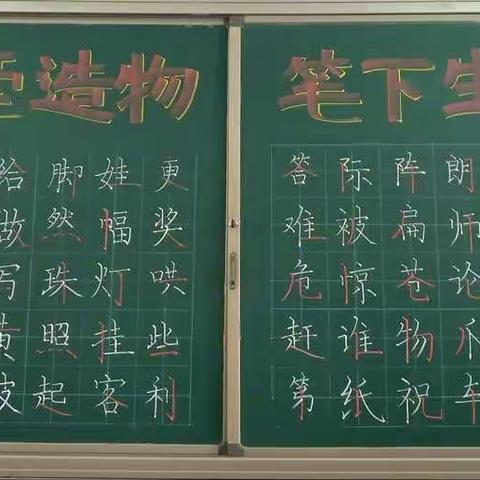 造物
给脚娃更
做然幅奖
写珠灯哄
照挂些
起客利
笔下生
答际阵朗
难被扁师
危惊苍论
赶谁物爪
第纸祝车